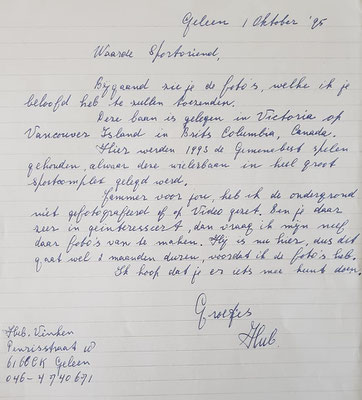 Geleen 1 Oktober '95
Waarde Sportvriend,
Bijgaand zie je de foto's, welke ik je
beloofd heb te zullen toezenden.
Deze baan is gelegen in Victoria op
Vancouver Island in Brits Columbia, Canada.
Hier werden 1993 de Gemenebest spelen
gehouden, alwaar deze wielerbaan in heel groot
sportcomplex gelegd werd.
Jammer voor jou, heb ik de ondergrond
niet gefotografeerd of op Video gezet. Ben je daar
zeer in geinteresseert, dan vraag ik mijn neef
daar foto's van te maken. Hij is nu hier, dus dit
gaat wel 2 maanden duren, voordat ik de foto's heb.
Ik hoop dat je er iets mee kunt doen.
Groetjes
Hub.
Hub. Vinken
Geleen
046-4740671